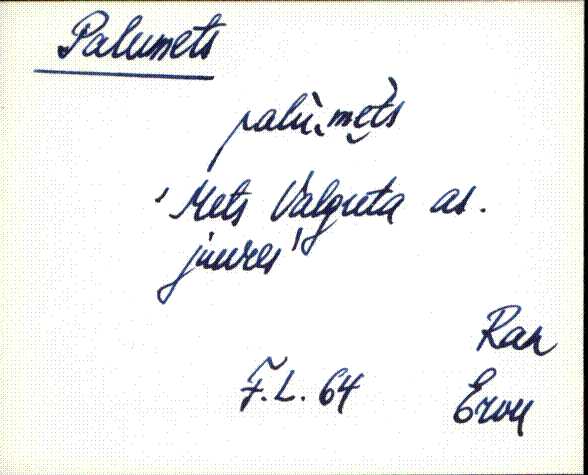 Palumets
palù.mèts
'Mets Valguta as.
juures'
Ran
F.L. 64